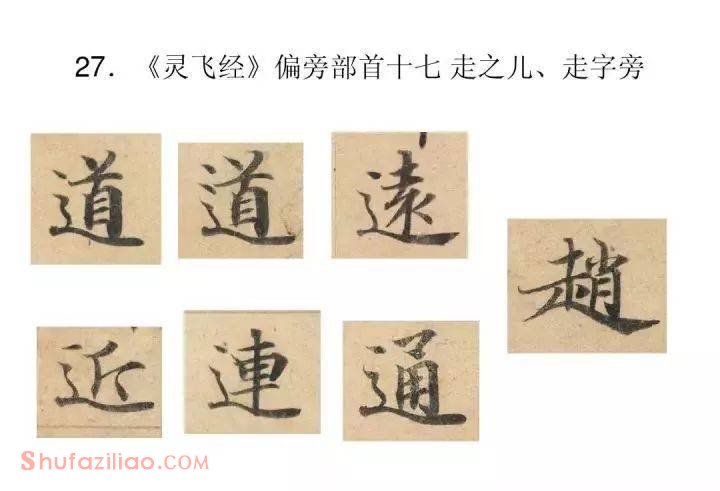 27. 《灵飞经》偏旁部首十七 走之儿、走字旁
道 道 遠
趙
近 連 通
Shufaziliao.COM